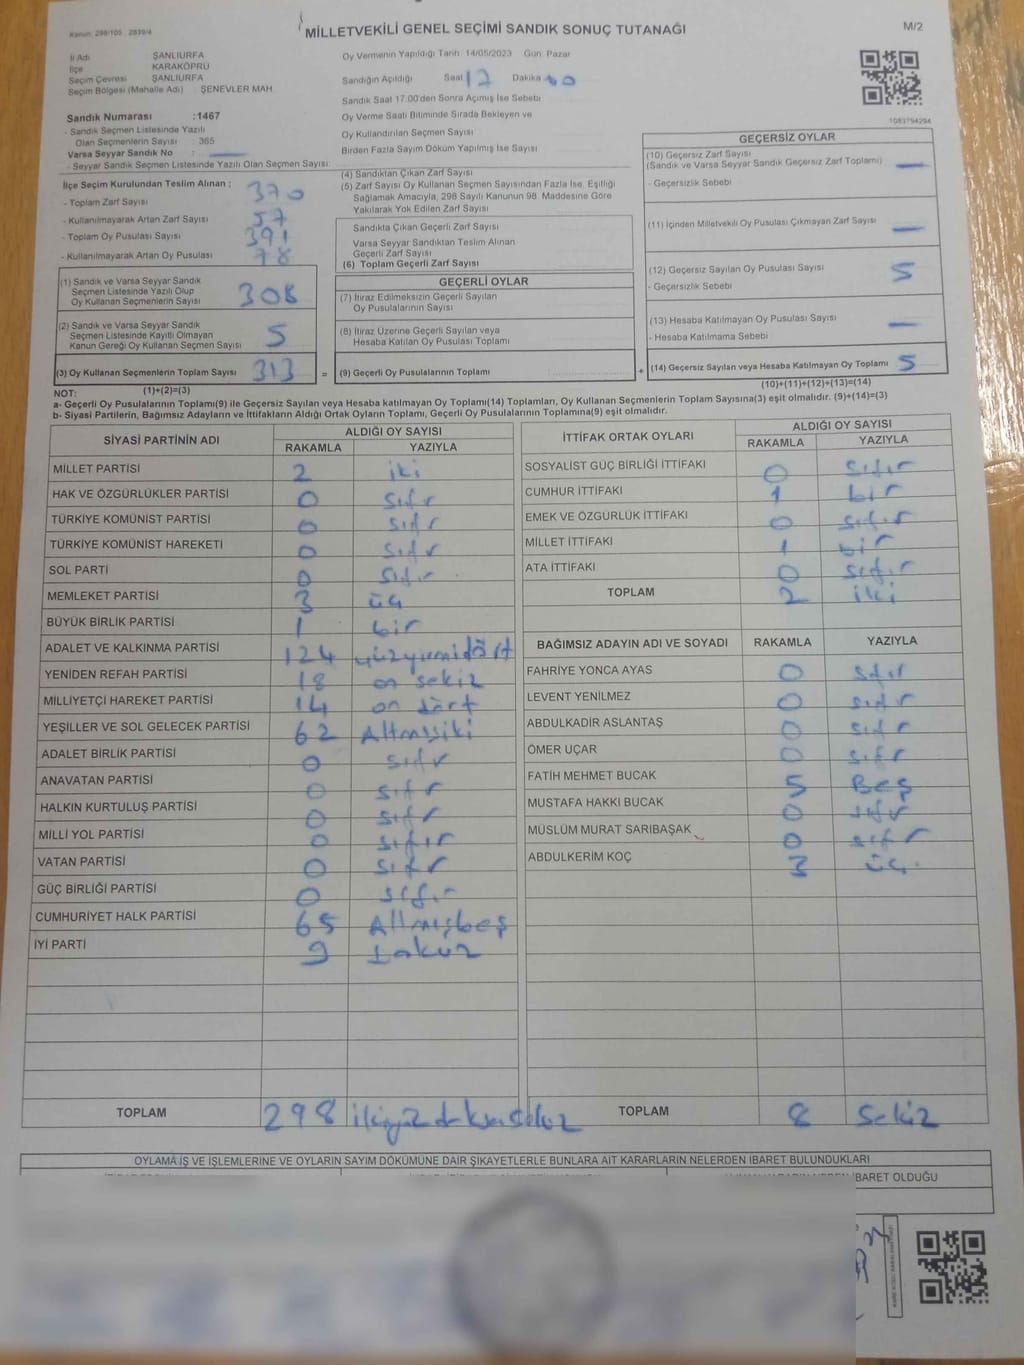 Kanun: 298/105 2839/4
MİLLETVEKİLİ GENEL SEÇİMİ SANDIK SONUÇ TUTANAĞI
M/2
İl Adı ŞANLIURFA
İlçe KARAKÖPRÜ
Seçim Çevresi ŞANLIURFA
Seçim Bölgesi (Mahalle Adı) ŞENEVLER MAH
Oy Vermenin Yapıldığı Tarih: 14/05/2023 Gün: Pazar
Sandığın Açıldığı Saat 17 Dakika 00
Sandık Saat 17.00'den Sonra Açılmış İse Sebebi
Oy Verme Saati Bitiminde Sırada Bekleyen ve
Oy Kullandırılan Seçmen Sayısı
Birden Fazla Sayım Döküm Yapılmış İse Sayısı
1083794294
Sandık Numarası :1467
- Sandık Seçmen Listesinde Yazılı
Olan Seçmenlerin Sayısı : 365
Varsa Seyyar Sandık No :
- Seyyar Sandık Seçmen Listesinde Yazılı Olan Seçmen Sayısı:
İlçe Seçim Kurulundan Teslim Alınan ;
- Toplam Zarf Sayısı 370
- Kullanılmayarak Artan Zarf Sayısı 57
- Toplam Oy Pusulası Sayısı 391
- Kullanılmayarak Artan Oy Pusulası 78
(1) Sandık ve Varsa Seyyar Sandık
Seçmen Listesinde Yazılı Olup
Oy Kullanan Seçmenlerin Sayısı 308
(2) Sandık ve Varsa Seyyar Sandık
Seçmen Listesinde Kayıtlı Olmayan
Kanun Gereği Oy Kullanan Seçmen Sayısı 5
(3) Oy Kullanan Seçmenlerin Toplam Sayısı 313 =
(4) Sandıktan Çıkan Zarf Sayısı
(5) Zarf Sayısı Oy Kullanan Seçmen Sayısından Fazla İse, Eşitliği
Sağlamak Amacıyla, 298 Sayılı Kanunun 98. Maddesine Göre
Yakılarak Yok Edilen Zarf Sayısı
Sandıkta Çıkan Geçerli Zarf Sayısı
Varsa Seyyar Sandıktan Teslim Alınan
Geçerli Zarf Sayısı
(6) Toplam Geçerli Zarf Sayısı
GEÇERLİ OYLAR
(7) İtiraz Edilmeksizin Geçerli Sayılan
Oy Pusulalarının Sayısı
(8) İtiraz Üzerine Geçerli Sayılan veya
Hesaba Katılan Oy Pusulası Toplamı
(9) Geçerli Oy Pusulalarının Toplamı +
GEÇERSİZ OYLAR
(10) Geçersiz Zarf Sayısı
(Sandık ve Varsa Seyyar Sandık Geçersiz Zarf Toplamı)
- Geçersizlik Sebebi
(11) İçinden Milletvekili Oy Pusulası Çıkmayan Zarf Sayısı
(12) Geçersiz Sayılan Oy Pusulası Sayısı 5
- Geçersizlik Sebebi
(13) Hesaba Katılmayan Oy Pusulası Sayısı
- Hesaba Katılmama Sebebi
(14) Geçersiz Sayılan veya Hesaba Katılmayan Oy Toplamı 5
NOT: (1)+(2)=(3) (10)+(11)+(12)+(13)=(14)
a- Geçerli Oy Pusulalarının Toplamı(9) ile Geçersiz Sayılan veya Hesaba katılmayan Oy Toplamı(14) Toplamları, Oy Kullanan Seçmenlerin Toplam Sayısına(3) eşit olmalıdır. (9)+(14)=(3)
b- Siyasi Partilerin, Bağımsız Adayların ve İttifakların Aldığı Ortak Oyların Toplamı, Geçerli Oy Pusulalarının Toplamına(9) eşit olmalıdır.
SİYASİ PARTİNİN ADI ALDIĞI OY SAYISI
RAKAMLA YAZIYLA
MİLLET PARTİSİ 2 iki
HAK VE ÖZGÜRLÜKLER PARTİSİ 0 sıfır
TÜRKİYE KOMÜNİST PARTİSİ 0 sıfır
TÜRKİYE KOMÜNİST HAREKETİ 0 sıfır
SOL PARTİ 0 sıfır
MEMLEKET PARTİSİ 3 üç
BÜYÜK BİRLİK PARTİSİ 1 bir
ADALET VE KALKINMA PARTİSİ 124 yüzyirmidört
YENİDEN REFAH PARTİSİ 18 on sekiz
MİLLİYETÇİ HAREKET PARTİSİ 14 on dört
YEŞİLLER VE SOL GELECEK PARTİSİ 62 Altmışiki
ADALET BİRLİK PARTİSİ 0 sıfır
ANAVATAN PARTİSİ 0 sıfır
HALKIN KURTULUŞ PARTİSİ 0 sıfır
MİLLİ YOL PARTİSİ 0 sıfır
VATAN PARTİSİ 0 sıfır
GÜÇ BİRLİĞİ PARTİSİ 0 sıfır
CUMHURİYET HALK PARTİSİ 65 Altmışbeş
İYİ PARTİ 9 Dokuz
TOPLAM 298 ikiyüzdoksansekiz
İTTİFAK ORTAK OYLARI ALDIĞI OY SAYISI
RAKAMLA YAZIYLA
SOSYALİST GÜÇ BİRLİĞİ İTTİFAKI 0 sıfır
CUMHUR İTTİFAKI 1 bir
EMEK VE ÖZGÜRLÜK İTTİFAKI 0 sıfır
MİLLET İTTİFAKI 1 bir
ATA İTTİFAKI 0 sıfır
TOPLAM 2 iki
BAĞIMSIZ ADAYIN ADI VE SOYADI RAKAMLA YAZIYLA
FAHRİYE YONCA AYAS 0 sıfır
LEVENT YENİLMEZ 0 sıfır
ABDULKADİR ASLANTAŞ 0 sıfır
ÖMER UÇAR 0 sıfır
FATİH MEHMET BUCAK 5 Beş
MUSTAFA HAKKI BUCAK 0 sıfır
MÜSLÜM MURAT SARIBAŞAK 0 sıfır
ABDULKERİM KOÇ 3 üç
TOPLAM 8 sekiz
OYLAMA İŞ VE İŞLEMLERİNE VE OYLARIN SAYIM DÖKÜMÜNE DAİR ŞİKAYETLERLE BUNLARA AİT KARARLARIN NELERDEN İBARET BULUNDUKLARI
İBARET OLDUĞU